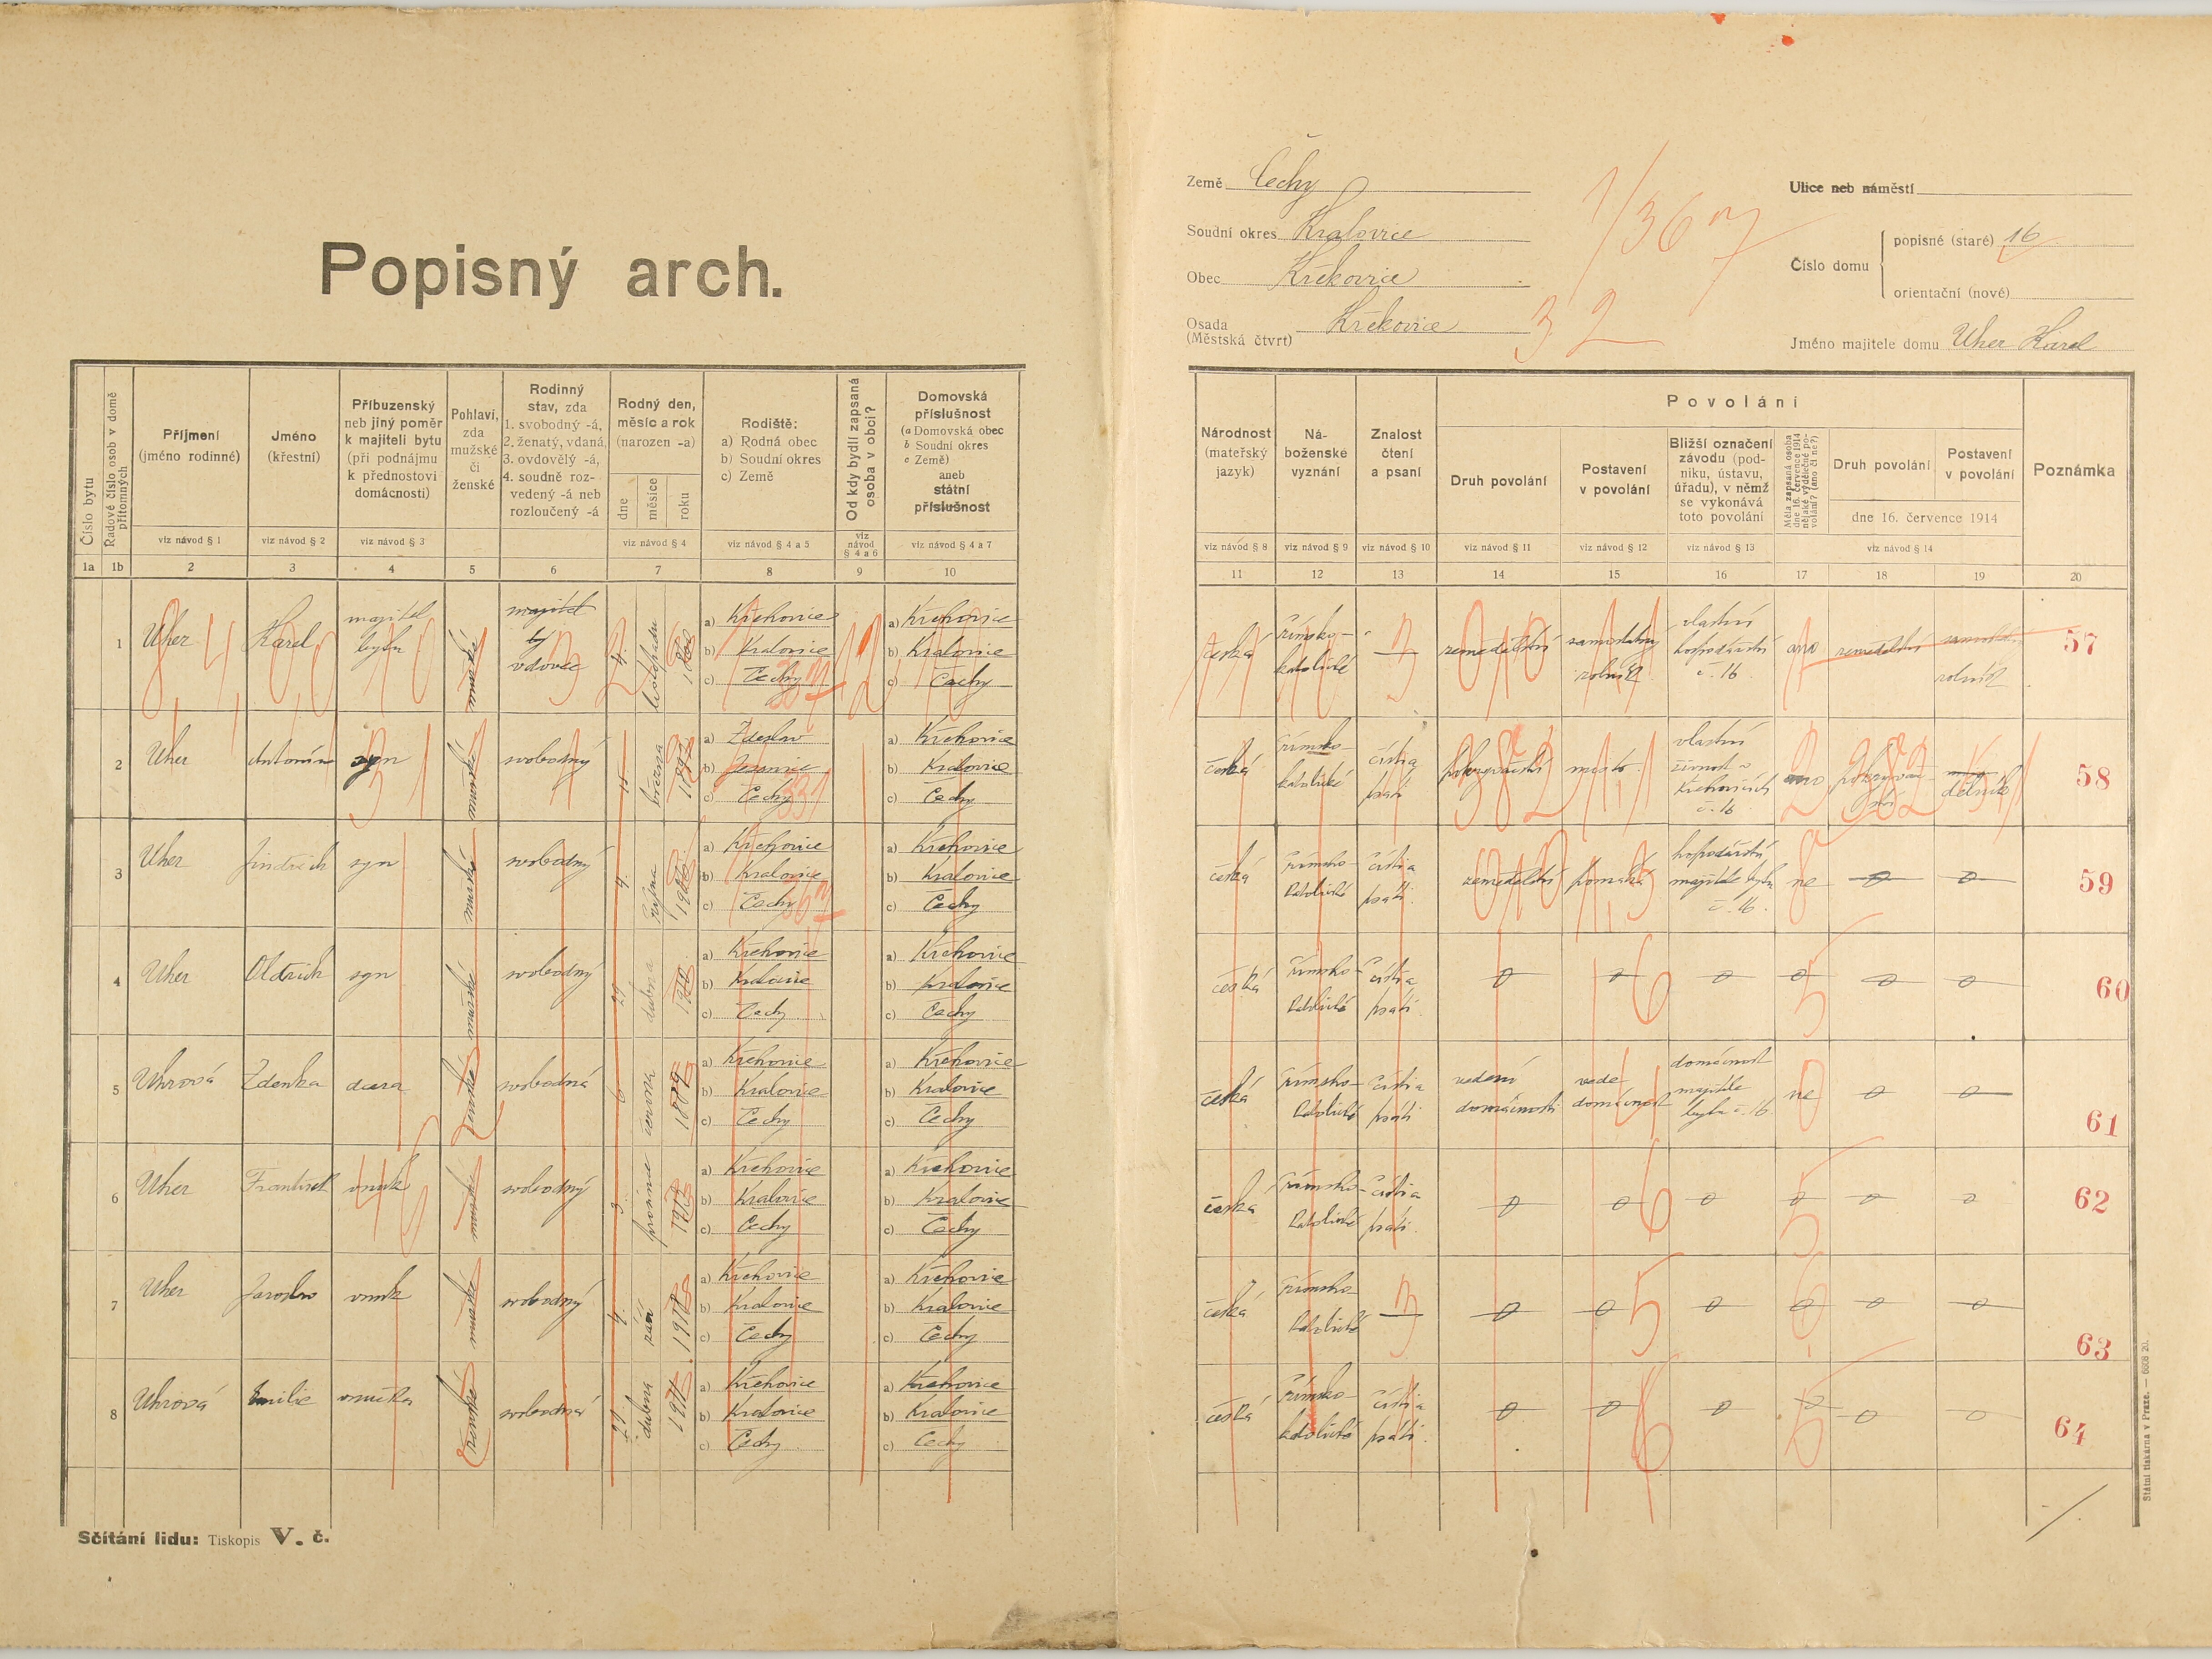 Popisný arch.
Země Čechy
Soudní okres Kralovice
Obec Křekovice
Osada
(Městská čtvrt) Křekovice
1/367
32
Ulice neb náměstí
Číslo domu
popisné (staré) 16
orientační (nové)
Jméno majitele domu Uher Karel
Číslo bytu
Řadové číslo osob v domě
přítomných
Příjmení
(jméno rodinné)
viz návod § 1
Jméno
(křestní)
viz návod § 2
Příbuzenský
neb jiný poměr
k majiteli bytu
(při podnájmu
k přednostovi
domácnosti)
viz návod § 3
Pohlaví,
zda
mužské
či
ženské
Rodinný
stav, zda
1. svobodný -á,
2. ženatý, vdaná,
3. ovdovělý -á,
4. soudně roz-
vedený -á neb
rozloučený -á
Rodný den,
měsíc a rok
(narozen -a)
dne
měsíce
roku
viz návod § 4
Rodiště:
a) Rodná obec
b) Soudní okres
c) Země
viz návod § 4 a 5
Od kdy bydlí zapsaná
osoba v obci?
viz
návod
§ 4 a 6
Domovská
příslušnost
(a Domovská obec
b Soudní okres
c Země)
aneb
státní
příslušnost
viz návod § 4 a 7
Národnost
(mateřský
jazyk)
viz návod § 8
Ná-
boženské
vyznání
viz návod § 9
Znalost
čtení
a psaní
viz návod § 10
Povolání
Druh povolání
viz návod § 11
Postavení
v povolání
viz návod § 12
Bližší označení
závodu (pod-
niku, ústavu,
úřadu), v němž
se vykonává
toto povolání
viz návod § 13
Měla zapsaná osoba
dne 16. července 1914
nějaké výdělečné po-
volání? (ano či ne?)
Druh povolání
Postavení
v povolání
dne 16. července 1914
viz návod § 14
Poznámka
1a 1b 2 3 4 5 6 7 8 9 10
11 12 13 14 15 16 17 18 19 20
1 Uher Karel majitel
bytu
mužské
vdovec
4. listopadu
a) Křekovice
b) Kralovice
c) Čechy
a) Křekovice
b) Kralovice
c) Čechy
česká
římsko-
katolické
—
zemědělství
samostatný
rolník
vlastní
hospodářství
č. 16
ano
zemědělství
rolník
57
2 Uher Antonín syn
mužské
svobodný
března
a) Zdeslav
b)
c) Čechy
a) Křekovice
b) Kralovice
c) Čechy
česká
římsko-
katolické
čísti a
psáti
pokrývačství
vlastní
živnost v
Křekovicích
č. 16
ano
dělník
58
3 Uher Jindřich syn
mužské
svobodný
října
a) Křekovice
b) Kralovice
c) Čechy
a) Křekovice
b) Kralovice
c) Čechy
česká
římsko-
katolické
čísti a
psáti
zemědělství
pomáhá
hospodářství
majitele bytu
č. 16.
ne
0 0
59
4 Uher Oldřich syn
mužské
svobodný
29 dubna
a) Křekovice
b) Kralovice
c) Čechy
a) Křekovice
b) Kralovice
c) Čechy
česká
římsko-
katolické
čísti a
psáti
0 0 0 0 0 0
60
5 Uhrová Zdenka dcera
ženské
svobodná
6 června 1889
a) Křekovice
b) Kralovice
c) Čechy
a) Křekovice
b) Kralovice
c) Čechy
česká
římsko-
katolické
čísti a
psáti
vedení
domácnosti
vede
domácnost
domácnost
majitele
bytu č. 16
ne
0 0
61
6 Uher František vnuk
mužské
svobodný
3 prosince
a) Křekovice
b) Kralovice
c) Čechy
a) Křekovice
b) Kralovice
c) Čechy
česká
římsko-
katolické
čísti a
psáti
0 0 0 0 0 0
62
7 Uher Jaroslav vnuk
mužské
svobodný
9. září
a) Křekovice
b) Kralovice
c) Čechy
a) Křekovice
b) Kralovice
c) Čechy
česká
římsko-
katolické
—
0 0 0 0 0 0
63
8 Uhrová Emilie vnučka
ženské
svobodná
29. dubna 1911
a) Křekovice
b) Kralovice
c) Čechy
a) Křekovice
b) Kralovice
c) Čechy
česká
římsko-
katolické
čísti a
psáti
0 0 0 0 0 0
64
Sčítání lidu: Tiskopis V. č.
Státní tiskárna v Praze. — 6608 20.